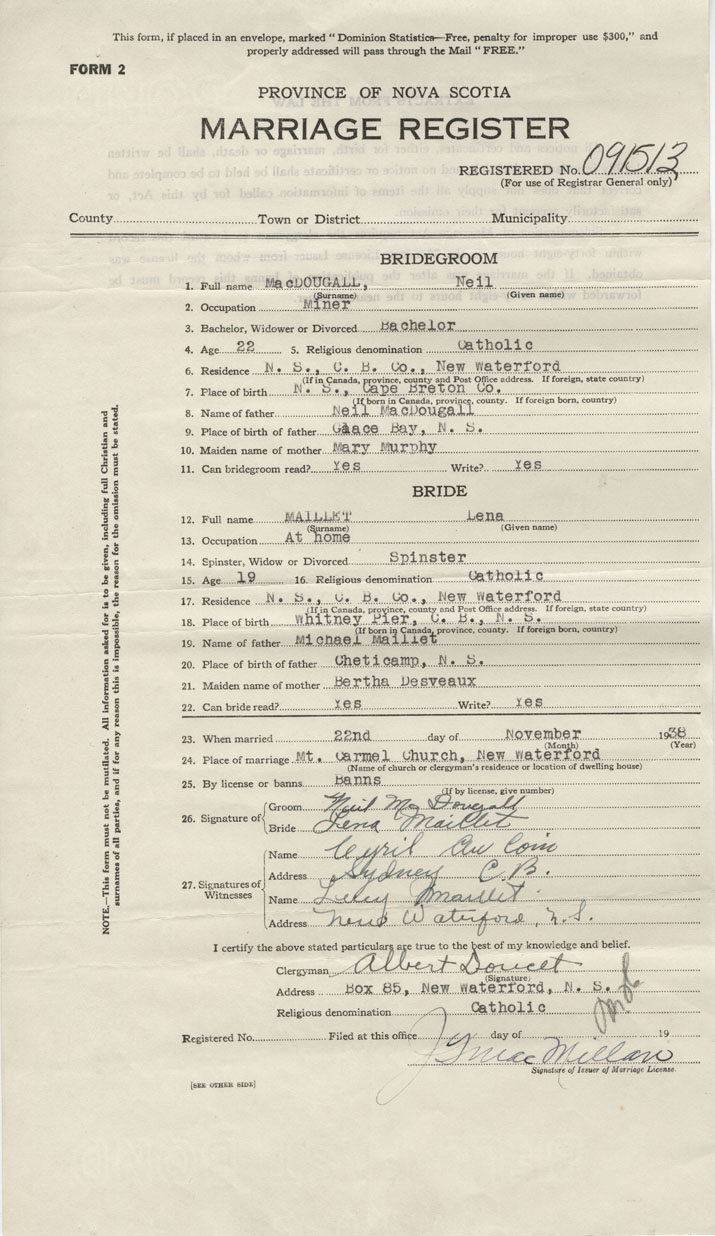 This form, if placed in an envelope, marked "Dominion Statistics—Free, penalty for improper use $300," and
properly addressed will pass through the Mail "FREE."
FORM 2
PROVINCE OF NOVA SCOTIA
MARRIAGE REGISTER
REGISTERED No. 091513
(For use of Registrar General only)
County Town or District Municipality
BRIDEGROOM
1. Full name MacDOUGALL, Neil
(Surname) (Given name)
2. Occupation Miner
3. Bachelor, Widower or Divorced Bachelor
4. Age 22 5. Religious denomination Catholic
6. Residence N. S., C. B. Co., New Waterford
(If in Canada, province, county and Post Office address. If foreign, state country)
7. Place of birth N. S., Cape Breton Co.
(If born in Canada, province, county. If foreign born, country)
8. Name of father Neil MacDougall
9. Place of birth of father Glace Bay, N. S.
10. Maiden name of mother Mary Murphy
11. Can bridegroom read? Yes Write? Yes
BRIDE
12. Full name MAILLET Lena
(Surname) (Given name)
13. Occupation At home
14. Spinster, Widow or Divorced Spinster
15. Age 19 16. Religious denomination Catholic
17. Residence N. S., C. B. Co., New Waterford
(If in Canada, province, county and Post Office address. If foreign, state country)
18. Place of birth Whitney Pier, C. B., N. S.
(If born in Canada, province, county. If foreign born, country)
19. Name of father Michael Maillet
20. Place of birth of father Cheticamp, N. S.
21. Maiden name of mother Bertha Desveaux
22. Can bride read? Yes Write? Yes
23. When married 22nd day of November 1938
(Month) (Year)
24. Place of marriage Mt. Carmel Church, New Waterford
(Name of church or clergyman's residence or location of dwelling house)
25. By license or banns Banns
(If by license, give number)
26. Signature of Groom Neil McDougall
Bride Lena Maillet
27. Signatures of Witnesses
Name Cyril Au Coin
Address Sydney C.B.
Name Lucy Maillet
Address New Waterford, N.S.
I certify the above stated particulars are true to the best of my knowledge and belief.
Clergyman Albert Doucet
(Signature)
Address Box 85, New Waterford, N. S.
Religious denomination Catholic
Registered No. Filed at this office day of 19
MacMillan
Signature of Issuer of Marriage License.
[SEE OTHER SIDE]
NOTE.—This form must not be mutilated. All information asked for is to be given, including full Christian and
surnames of all parties, and if for any reason this is impossible, the reason for the omission must be stated.